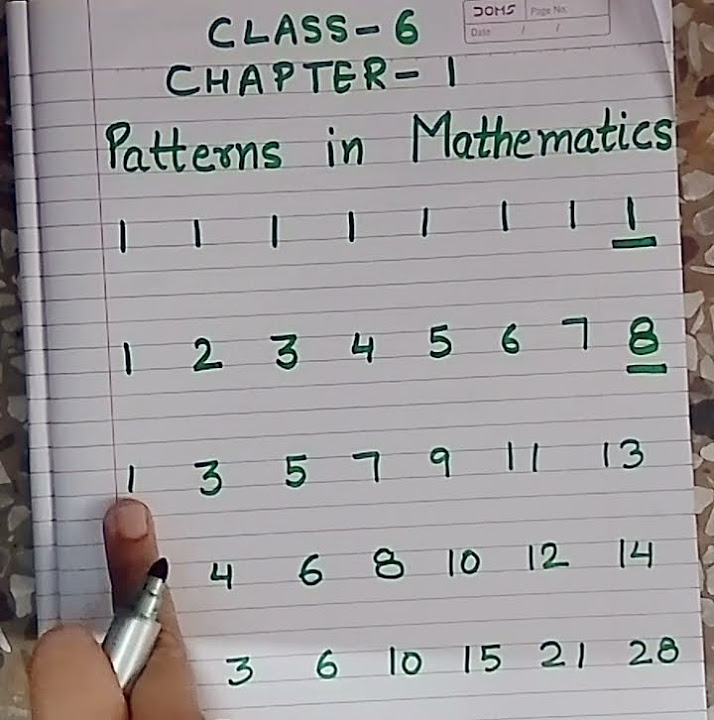 DOMS Page No.
Date / /
CLASS-6
CHAPTER-1
Patterns in Mathematics
1 1 1 1 1 1 1 1
1 2 3 4 5 6 7 8
1 3 5 7 9 11 13
4 6 8 10 12 14
3 6 10 15 21 28